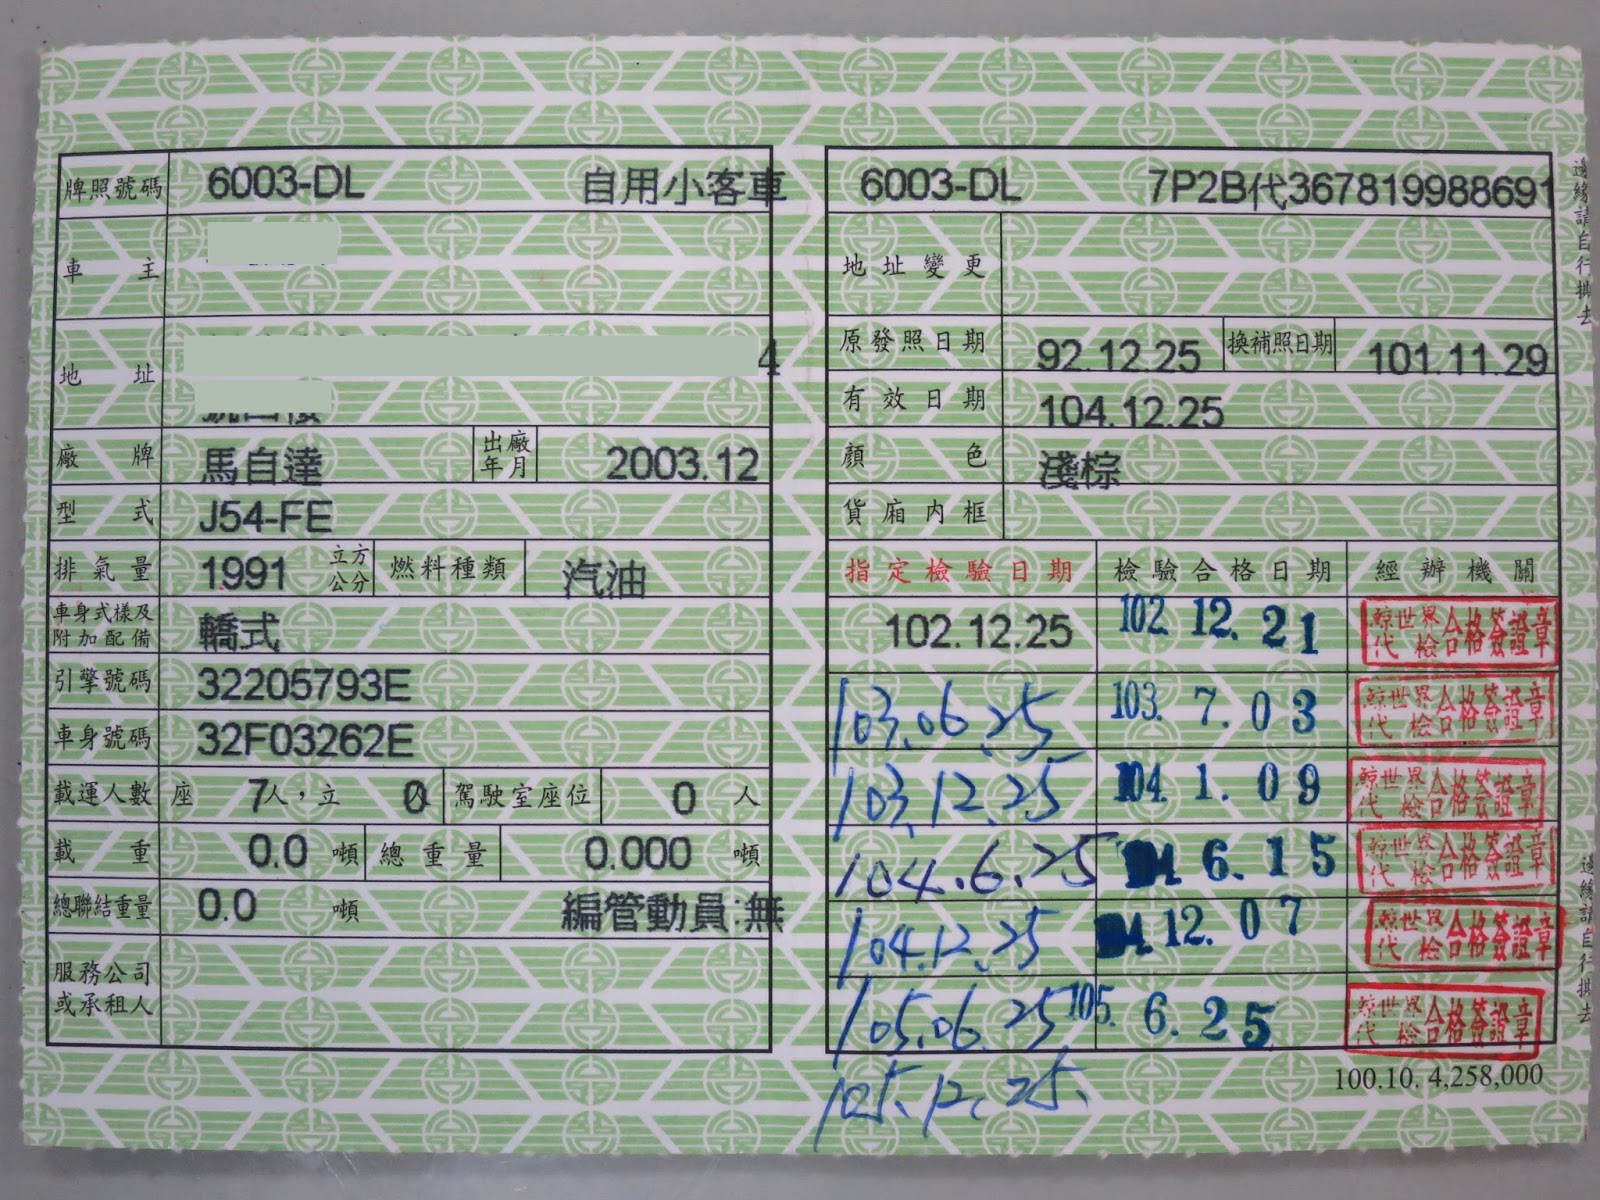 牌照號碼 6003-DL 自用小客車
車主
地址 4
廠牌 馬自達 出廠年月 2003.12
型式 J54-FE
排氣量 1991 立方公分 燃料種類 汽油
車身式樣及附加配備 轎式
引擎號碼 32205793E
車身號碼 32F03262E
載運人數 座 7人，立 0人 駕駛室座位 0 人
載重 0.0 噸 總重量 0.000 噸
總聯結重量 0.0 噸 編管動員:無
服務公司或承租人
6003-DL 7P2B代367819988691
地址變更
原發照日期 92.12.25 換補照日期 101.11.29
有效日期 104.12.25
顏色 淺棕
貨廂內框
指定檢驗日期 檢驗合格日期 經辦機關
102.12.25 102.12.21 鯨世界代檢 合格簽證章
103.06.25 103.7.03 鯨世界代檢 合格簽證章
103.12.25 104.1.09 鯨世界代檢 合格簽證章
104.6.25 104.6.15 鯨世界代檢 合格簽證章
104.12.25 104.12.07 鯨世界代檢 合格簽證章
105.06.25 105.6.25 鯨世界代檢 合格簽證章
105.12.25
100.10. 4,258,000
邊緣請自行撕去
邊緣請自行撕去